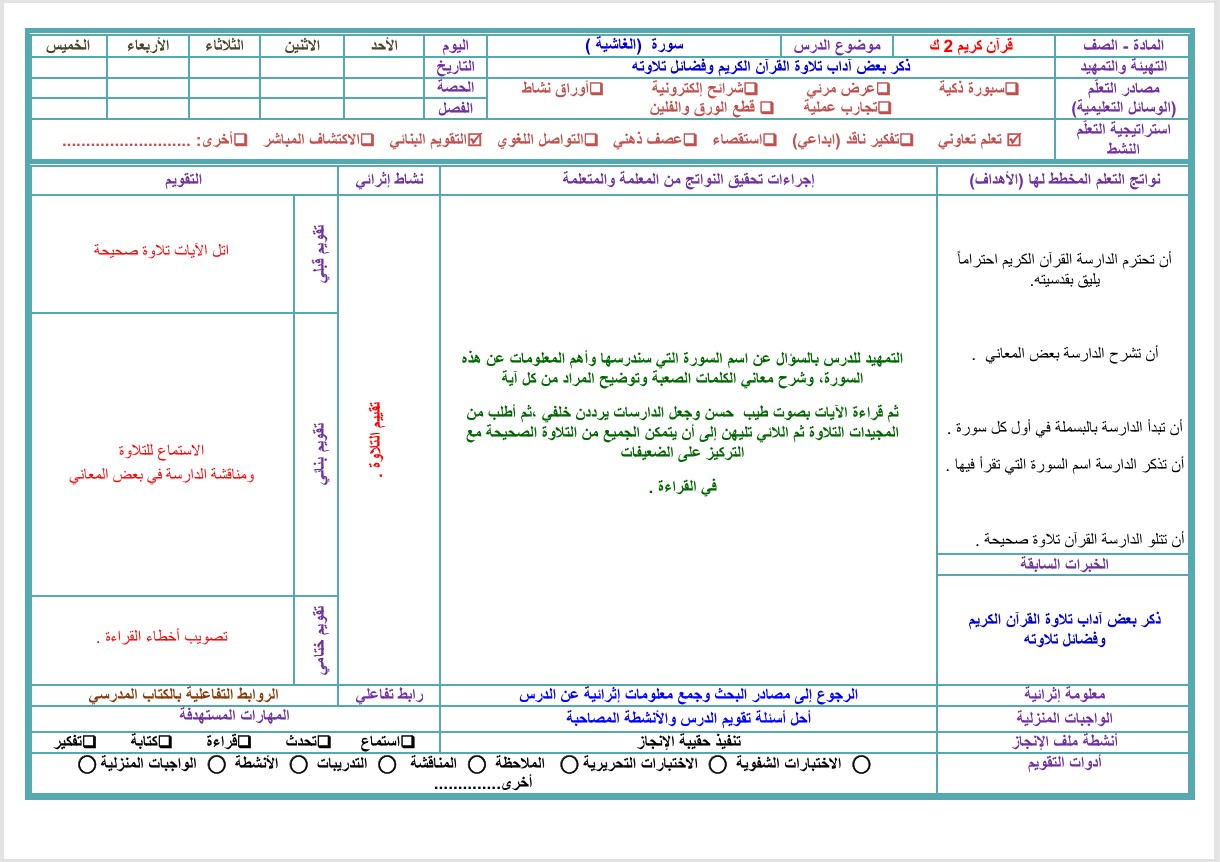 المادة - الصف قرآن كريم 2 ك موضوع الدرس سورة (الغاشية ) اليوم الأحد الاثنين الثلاثاء الأربعاء الخميس
التهيئة والتمهيد ذكر بعض آداب تلاوة القرآن الكريم وفضائل تلاوته التاريخ
مصادر التعلّم ❑سبورة ذكية ❑عرض مرئي ❑شرائح إلكترونية ❑أوراق نشاط الحصة
(الوسائل التعليمية) ❑تجارب عملية ❑ قطع الورق والفلين الفصل
استراتيجية التعلّم
النشط
☑ تعلم تعاوني ❑تفكير ناقد (ابداعي) ❑استقصاء ❑عصف ذهني ❑التواصل اللغوي ☑التقويم البنائي ❑الاكتشاف المباشر ❑أخرى: ...........................
نواتج التعلم المخطط لها (الأهداف) إجراءات تحقيق النواتج من المعلمة والمتعلمة نشاط إثرائي التقويم
أن تحترم الدارسة القرآن الكريم احتراماً
يليق بقدسيته.
أن تشرح الدارسة بعض المعاني .
أن تبدأ الدارسة بالبسملة في أول كل سورة .
أن تذكر الدارسة اسم السورة التي تقرأ فيها .
أن تتلو الدارسة القرآن تلاوة صحيحة .
الخبرات السابقة
ذكر بعض آداب تلاوة القرآن الكريم
وفضائل تلاوته
التمهيد للدرس بالسؤال عن اسم السورة التي سندرسها وأهم المعلومات عن هذه
السورة، وشرح معاني الكلمات الصعبة وتوضيح المراد من كل آية
ثم قراءة الآيات بصوت طيب حسن وجعل الدارسات يرددن خلفي ،ثم أطلب من
المجيدات التلاوة ثم اللاتي تليهن إلى أن يتمكن الجميع من التلاوة الصحيحة مع
التركيز على الضعيفات
في القراءة .
تقييم التلاوة .
تقويم قبلي
اتل الآيات تلاوة صحيحة
تقويم بنائي
الاستماع للتلاوة
ومناقشة الدارسة في بعض المعاني
تقويم ختامي
تصويب أخطاء القراءة .
معلومة إثرائية الرجوع إلى مصادر البحث وجمع معلومات إثرائية عن الدرس رابط تفاعلي الروابط التفاعلية بالكتاب المدرسي
الواجبات المنزلية أحل أسئلة تقويم الدرس والأنشطة المصاحبة المهارات المستهدفة
أنشطة ملف الإنجاز تنفيذ حقيبة الإنجاز ❑استماع ❑تحدث ❑قراءة ❑كتابة ❑تفكير
أدوات التقويم ◯ الاختبارات الشفوية ◯ الاختبارات التحريرية ◯ الملاحظة ◯ المناقشة ◯ التدريبات ◯ الأنشطة ◯ الواجبات المنزلية ◯
أخرى...............